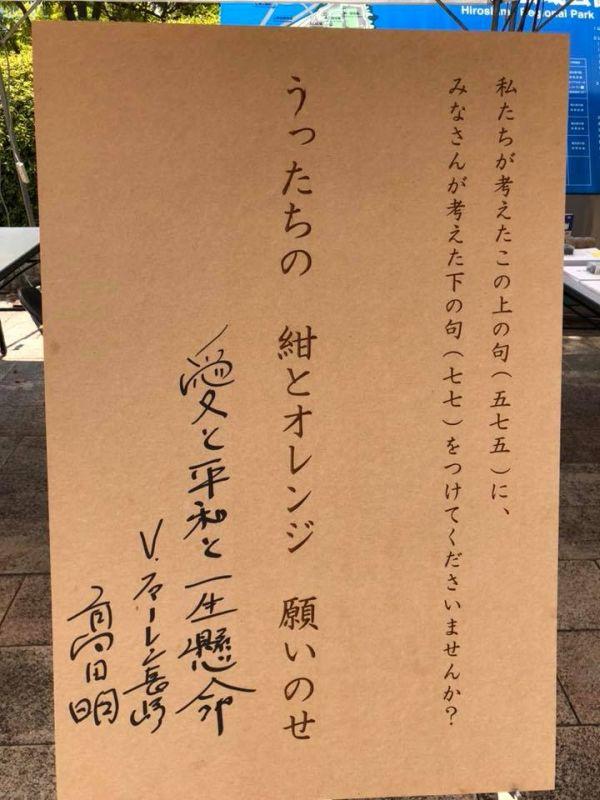 Hiroshima Regional Park
私たちが考えたこの上の句(五七五)に、
みなさんが考えた下の句(七七)をつけてくださいませんか?
うったちの 紺とオレンジ 願いのせ
愛と平和と一生懸命
V.ファーレン長崎
高田明